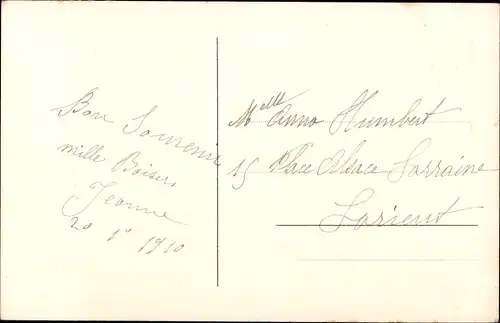 Bon Souvenir
mille Baisers
Jeanne
20 1º 1910
Melle Anna Humbert
15 Place Alsace Lorraine
Lorient